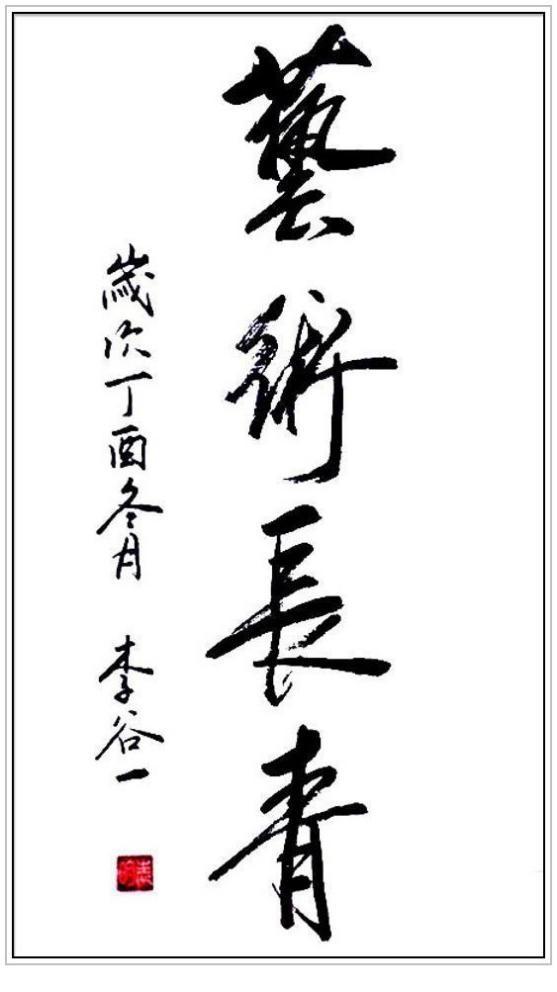 藝術長青
歲次丁酉冬月 李谷一